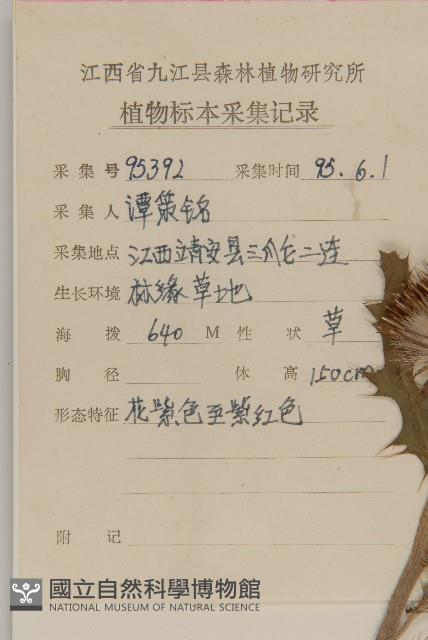 江西省九江县森林植物研究所
植物标本采集记录
采集号 95392 采集时间 95.6.1
采集人 谭策铭
采集地点 江西靖安县三爪仑二连
生长环境 林缘草地
海拨 640 M 性状 草
胸径 体高 150cm
形态特征 花紫色至紫红色
附记
國立自然科學博物館
NATIONAL MUSEUM OF NATURAL SCIENCE